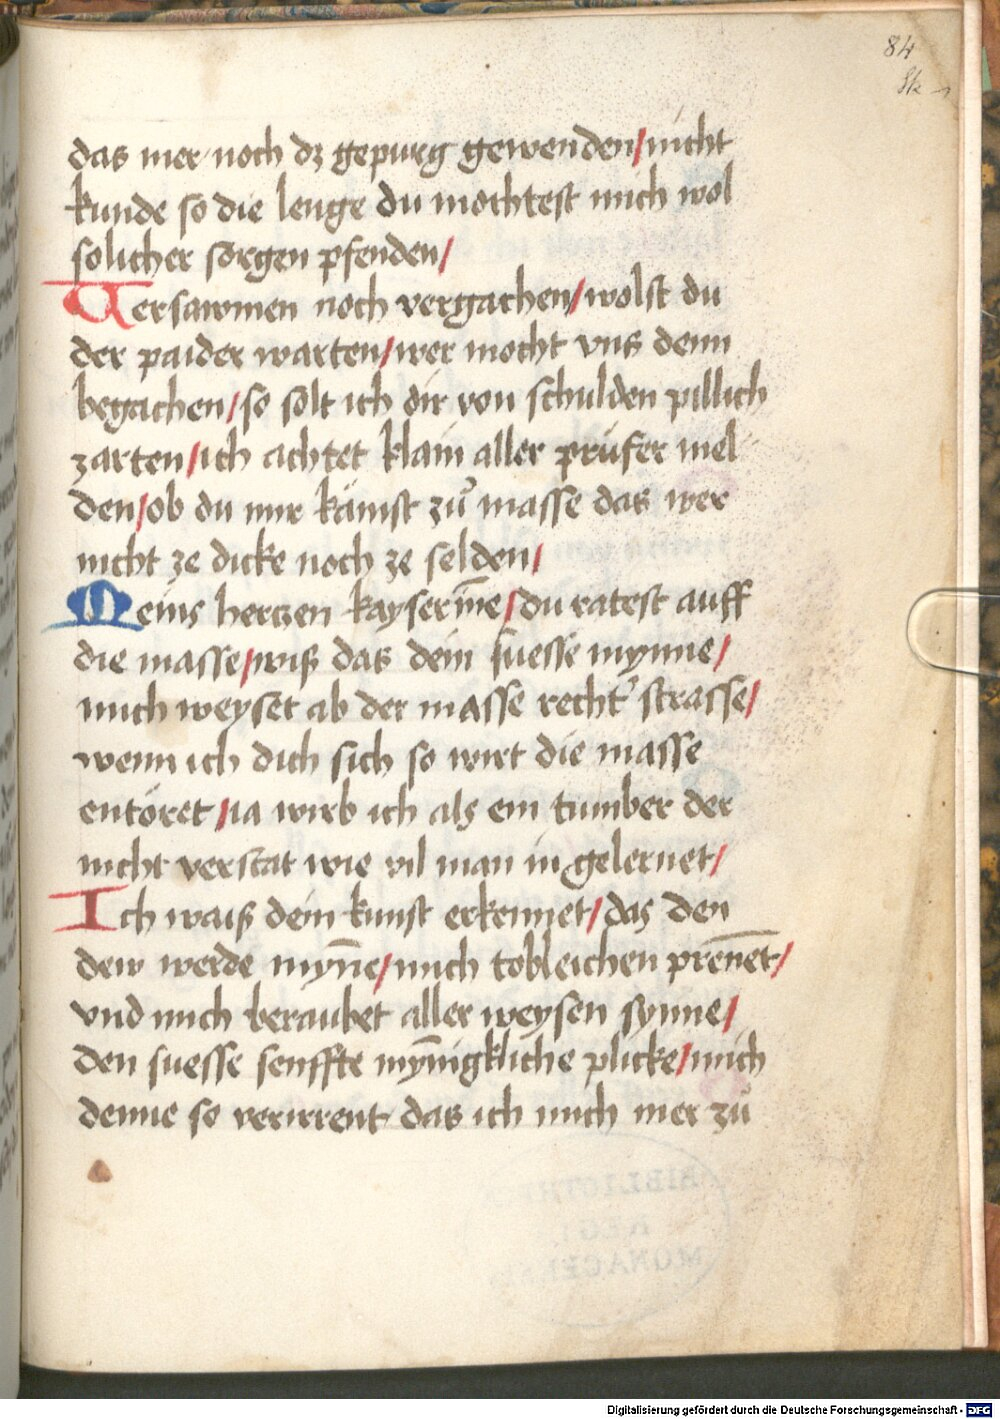 84
das mer noch dz gepurg gewenden/nicht
kunde so die lenge du mochtest mich wol
solicher sorgen pfenden/
Versawmen noch vergachen/wolst du
der paider warten/wer mocht vns denn
begachen/so solt ich dir von schulden pillich
zarten/ich achtet klain aller prüfer mel
den/ob du mir kämst zů masse das wer
nicht ze dicke noch ze selden/
Meins herczen kayserīne/du ratest auff
die masse/wiß das dein suesse mynne/
mich weyset ab der masse recht' strasse/
wenn ich dich sich so wirt die masse
entöret/ia wirb ich als ein tumber der
nicht verstat wie vil man in gelernet/
Ich waiß dein kunst erkennet/das den
dew werde myn̄e/mich tobleichen pren̄et/
vnd mich beraubet aller weysen synne/
den suesse senffte myn̄igkliche plicke/mich
denne so verirrent das ich mich mer zů
BIBLIOTHECA
REGIA
MONACENSIS
Digitalisierung gefördert durch die Deutsche Forschungsgemeinschaft - DFG